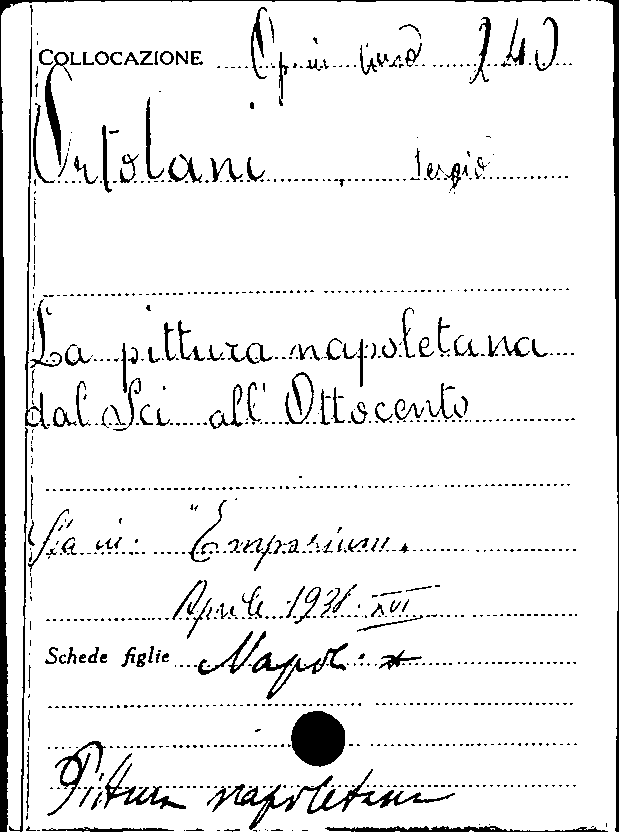 COLLOCAZIONE Op. in 240
Ortolani, Sergio
La pittura napoletana
dal Sei all' Ottocento
Sta in: "Emporium.
Aprile 1938. XVI
Schede figlie Napol. *
Pittura napoletana